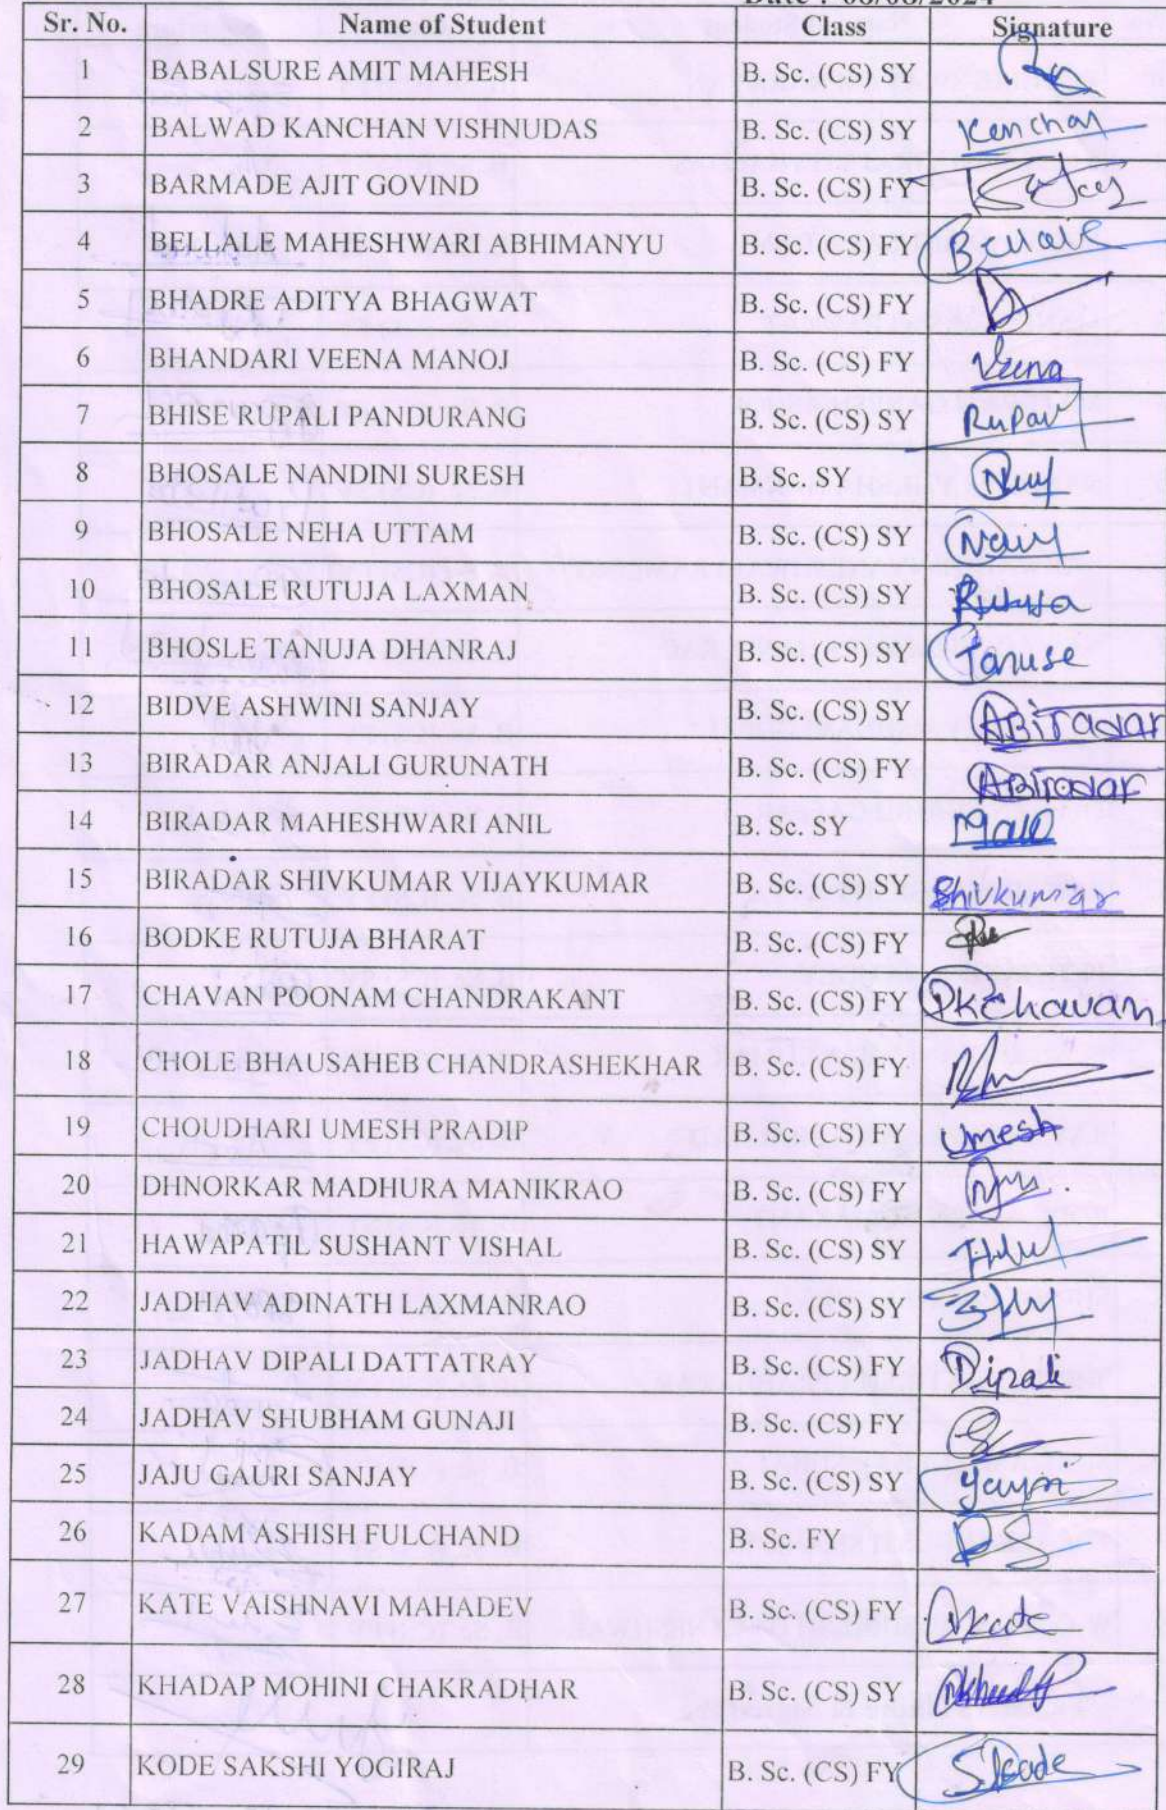 Sr. No. Name of Student Class Signature
1 BABALSURE AMIT MAHESH B. Sc. (CS) SY
2 BALWAD KANCHAN VISHNUDAS B. Sc. (CS) SY Kanchan
3 BARMADE AJIT GOVIND B. Sc. (CS) FY
4 BELLALE MAHESHWARI ABHIMANYU B. Sc. (CS) FY Bellale
5 BHADRE ADITYA BHAGWAT B. Sc. (CS) FY
6 BHANDARI VEENA MANOJ B. Sc. (CS) FY Veena
7 BHISE RUPALI PANDURANG B. Sc. (CS) SY Rupali
8 BHOSALE NANDINI SURESH B. Sc. SY
9 BHOSALE NEHA UTTAM B. Sc. (CS) SY
10 BHOSALE RUTUJA LAXMAN B. Sc. (CS) SY Rutuja
11 BHOSLE TANUJA DHANRAJ B. Sc. (CS) SY Tanuse
12 BIDVE ASHWINI SANJAY B. Sc. (CS) SY ABiradar
13 BIRADAR ANJALI GURUNATH B. Sc. (CS) FY ABiradar
14 BIRADAR MAHESHWARI ANIL B. Sc. SY
15 BIRADAR SHIVKUMAR VIJAYKUMAR B. Sc. (CS) SY Shivkumar
16 BODKE RUTUJA BHARAT B. Sc. (CS) FY
17 CHAVAN POONAM CHANDRAKANT B. Sc. (CS) FY PKChavan
18 CHOLE BHAUSAHEB CHANDRASHEKHAR B. Sc. (CS) FY
19 CHOUDHARI UMESH PRADIP B. Sc. (CS) FY Umesh
20 DHNORKAR MADHURA MANIKRAO B. Sc. (CS) FY
21 HAWAPATIL SUSHANT VISHAL B. Sc. (CS) SY
22 JADHAV ADINATH LAXMANRAO B. Sc. (CS) SY
23 JADHAV DIPALI DATTATRAY B. Sc. (CS) FY Dipali
24 JADHAV SHUBHAM GUNAJI B. Sc. (CS) FY
25 JAJU GAURI SANJAY B. Sc. (CS) SY Gauri
26 KADAM ASHISH FULCHAND B. Sc. FY
27 KATE VAISHNAVI MAHADEV B. Sc. (CS) FY Vkate
28 KHADAP MOHINI CHAKRADHAR B. Sc. (CS) SY
29 KODE SAKSHI YOGIRAJ B. Sc. (CS) FY S.kode